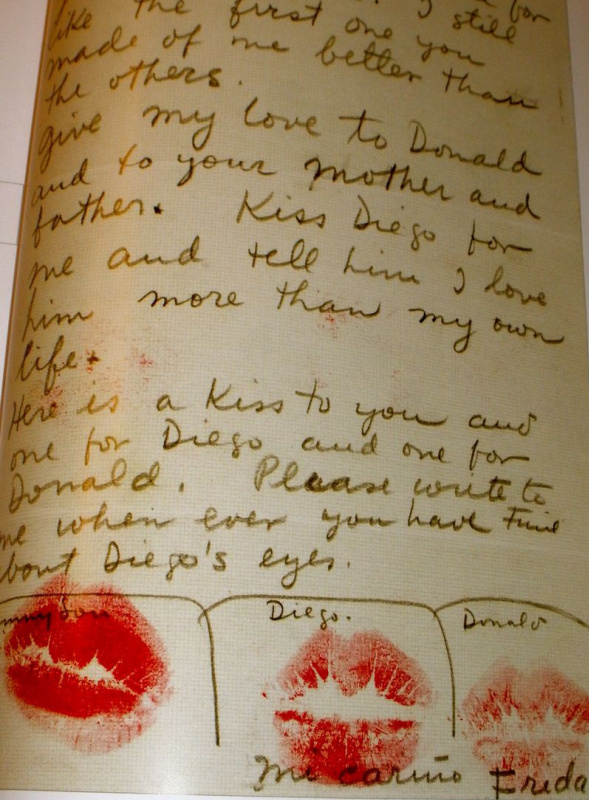 for
like the first one you I still
made of me better than
the others.
Give my love to Donald
and to your mother and
father. Kiss Diego for
me and tell him I love
him more than my own
life.
Here is a Kiss to you and
one for Diego and one for
Donald. Please write to
me when ever you have time
about Diego's eyes.
Diego. Donald
Mi cariño Frida